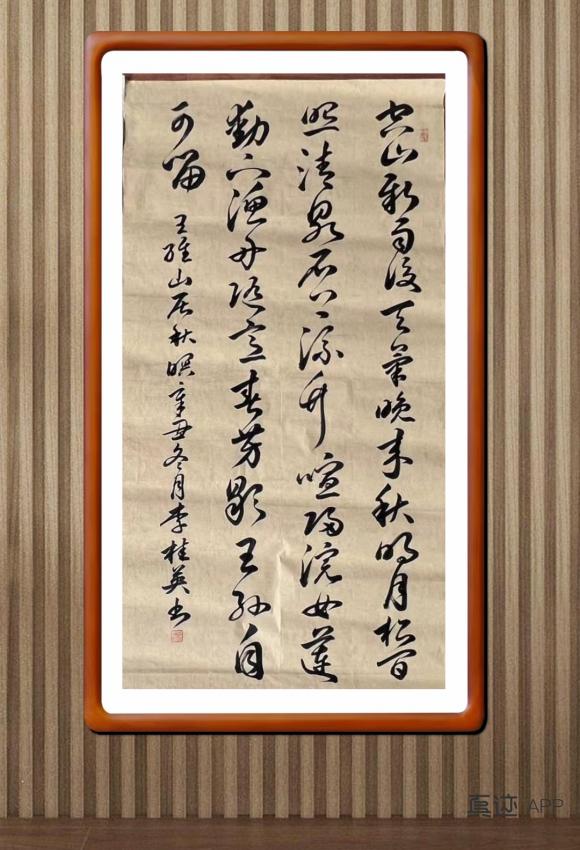 空山新雨後天氣晚來秋明月松間
照清泉石上流竹喧歸浣女蓮
動下漁舟隨意春芳歇王孫自
可留 王維山居秋暝辛丑冬月李桂英书
真迹 APP